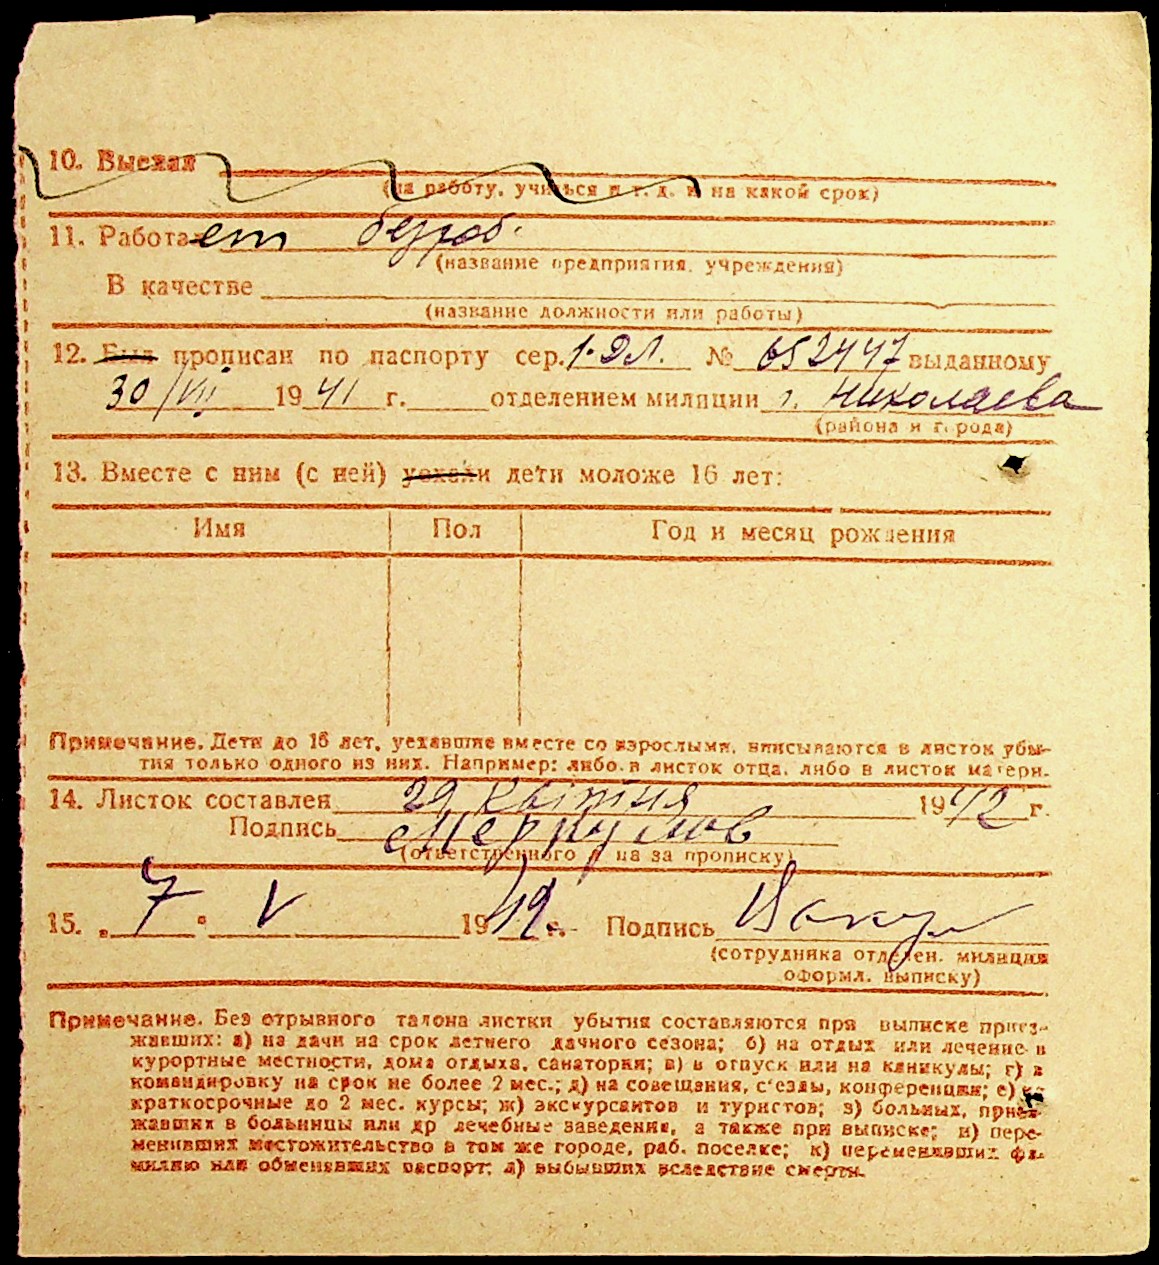 10. Выехал
(на работу, учиться и т. д. и на какой срок)
11. Работает безроб.
(название предприятия, учреждения)
В качестве
(название должности или работы)
12. Был прописан по паспорту сер. 1-ЭЛ. № 652447 выданному
30/VII 1941 г. отделением милиции г. Николаева
(района и города)
13. Вместе с ним (с ней) уехали дети моложе 16 лет:
Имя Пол Год и месяц рождения
Примечание. Дети до 16 лет, уехавшие вместе со взрослыми, вписываются в листок убы-
тия только одного из них. Например: либо в листок отца, либо в листок матери.
14. Листок составлен 29 квітня 1942 г.
Подпись Меркулов
(ответственного лица за прописку)
15. „7" V 1942 г. Подпись
(сотрудника отделен. милиции
оформл. выписку)
Примечание. Без отрывного талона листки убытия составляются при выписке приез-
жавших: а) на дачи на срок летнего дачного сезона; б) на отдых или лечение в
курортные местности, дома отдыха, санатории; в) в отпуск или на каникулы; г) в
командировку на срок не более 2 мес.; д) на совещания, с'езды, конференции; е) на
краткосрочные до 2 мес. курсы; ж) экскурсантов и туристов; з) больных, приез-
жавших в больницы или др лечебные заведения, а также при выписке; и) пере-
менивших местожительство в том же городе, раб. поселке; к) переменивших фа-
милию или обменявших паспорт; л) выбывших вследствие смерти.